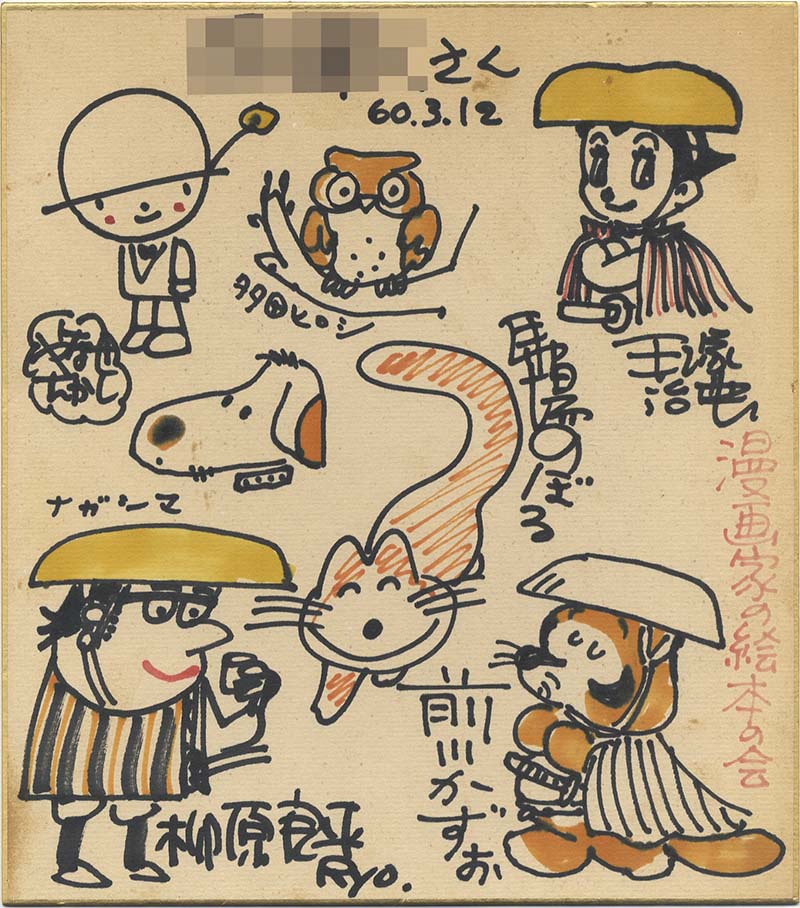 さん
60.3.12
多田ヒロシ
やなせ
たかし
手塚
治虫
馬場のぼる
ナガシマ
漫画家の絵本の会
前川かずお
柳原良平
Ryo.